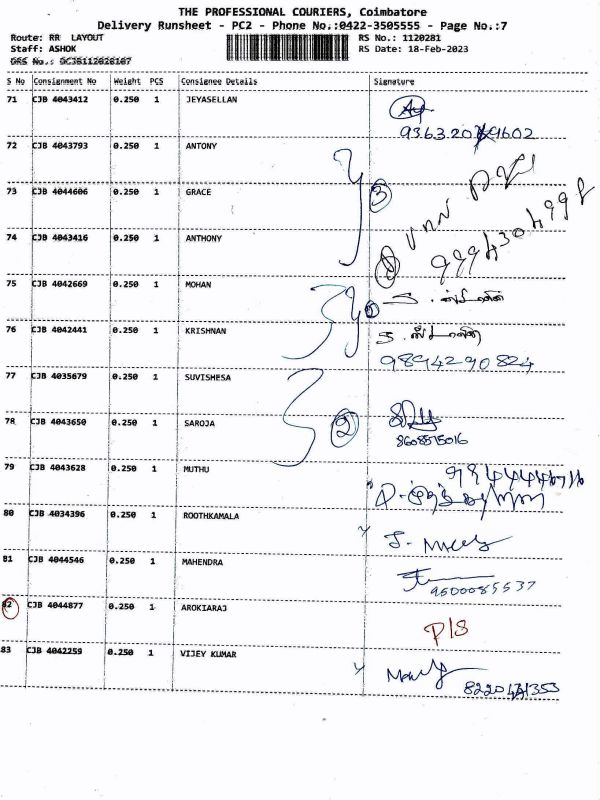 THE PROFESSIONAL COURIERS, Coimbatore
Delivery Runsheet - PC2 - Phone No.:0422-3505555 - Page No.:7
Route: RR LAYOUT RS No.: 1120281
Staff: ASHOK RS Date: 18-Feb-2023
GRS No.:
S No Consignment No Weight PCS Consignee Details Signature
71 CJB 4043412 0.250 1 JEYASELLAN
72 CJB 4043793 0.250 1 ANTONY
73 CJB 4044606 0.250 1 GRACE 3
74 CJB 4043416 0.250 1 ANTHONY 9994304998
75 CJB 4042669 0.250 1 MOHAN 2
76 CJB 4042441 0.250 1 KRISHNAN
9894290824
77 CJB 4035679 0.250 1 SUVISHESA
78 CJB 4043650 0.250 1 SAROJA 2
8608575016
79 CJB 4043628 0.250 1 MUTHU
80 CJB 4034396 0.250 1 ROOTHKAMALA
81 CJB 4044546 0.250 1 MAHENDRA
9500085537
82 CJB 4044877 0.250 1 AROKIARAJ P/S
83 CJB 4042259 0.250 1 VIJEY KUMAR